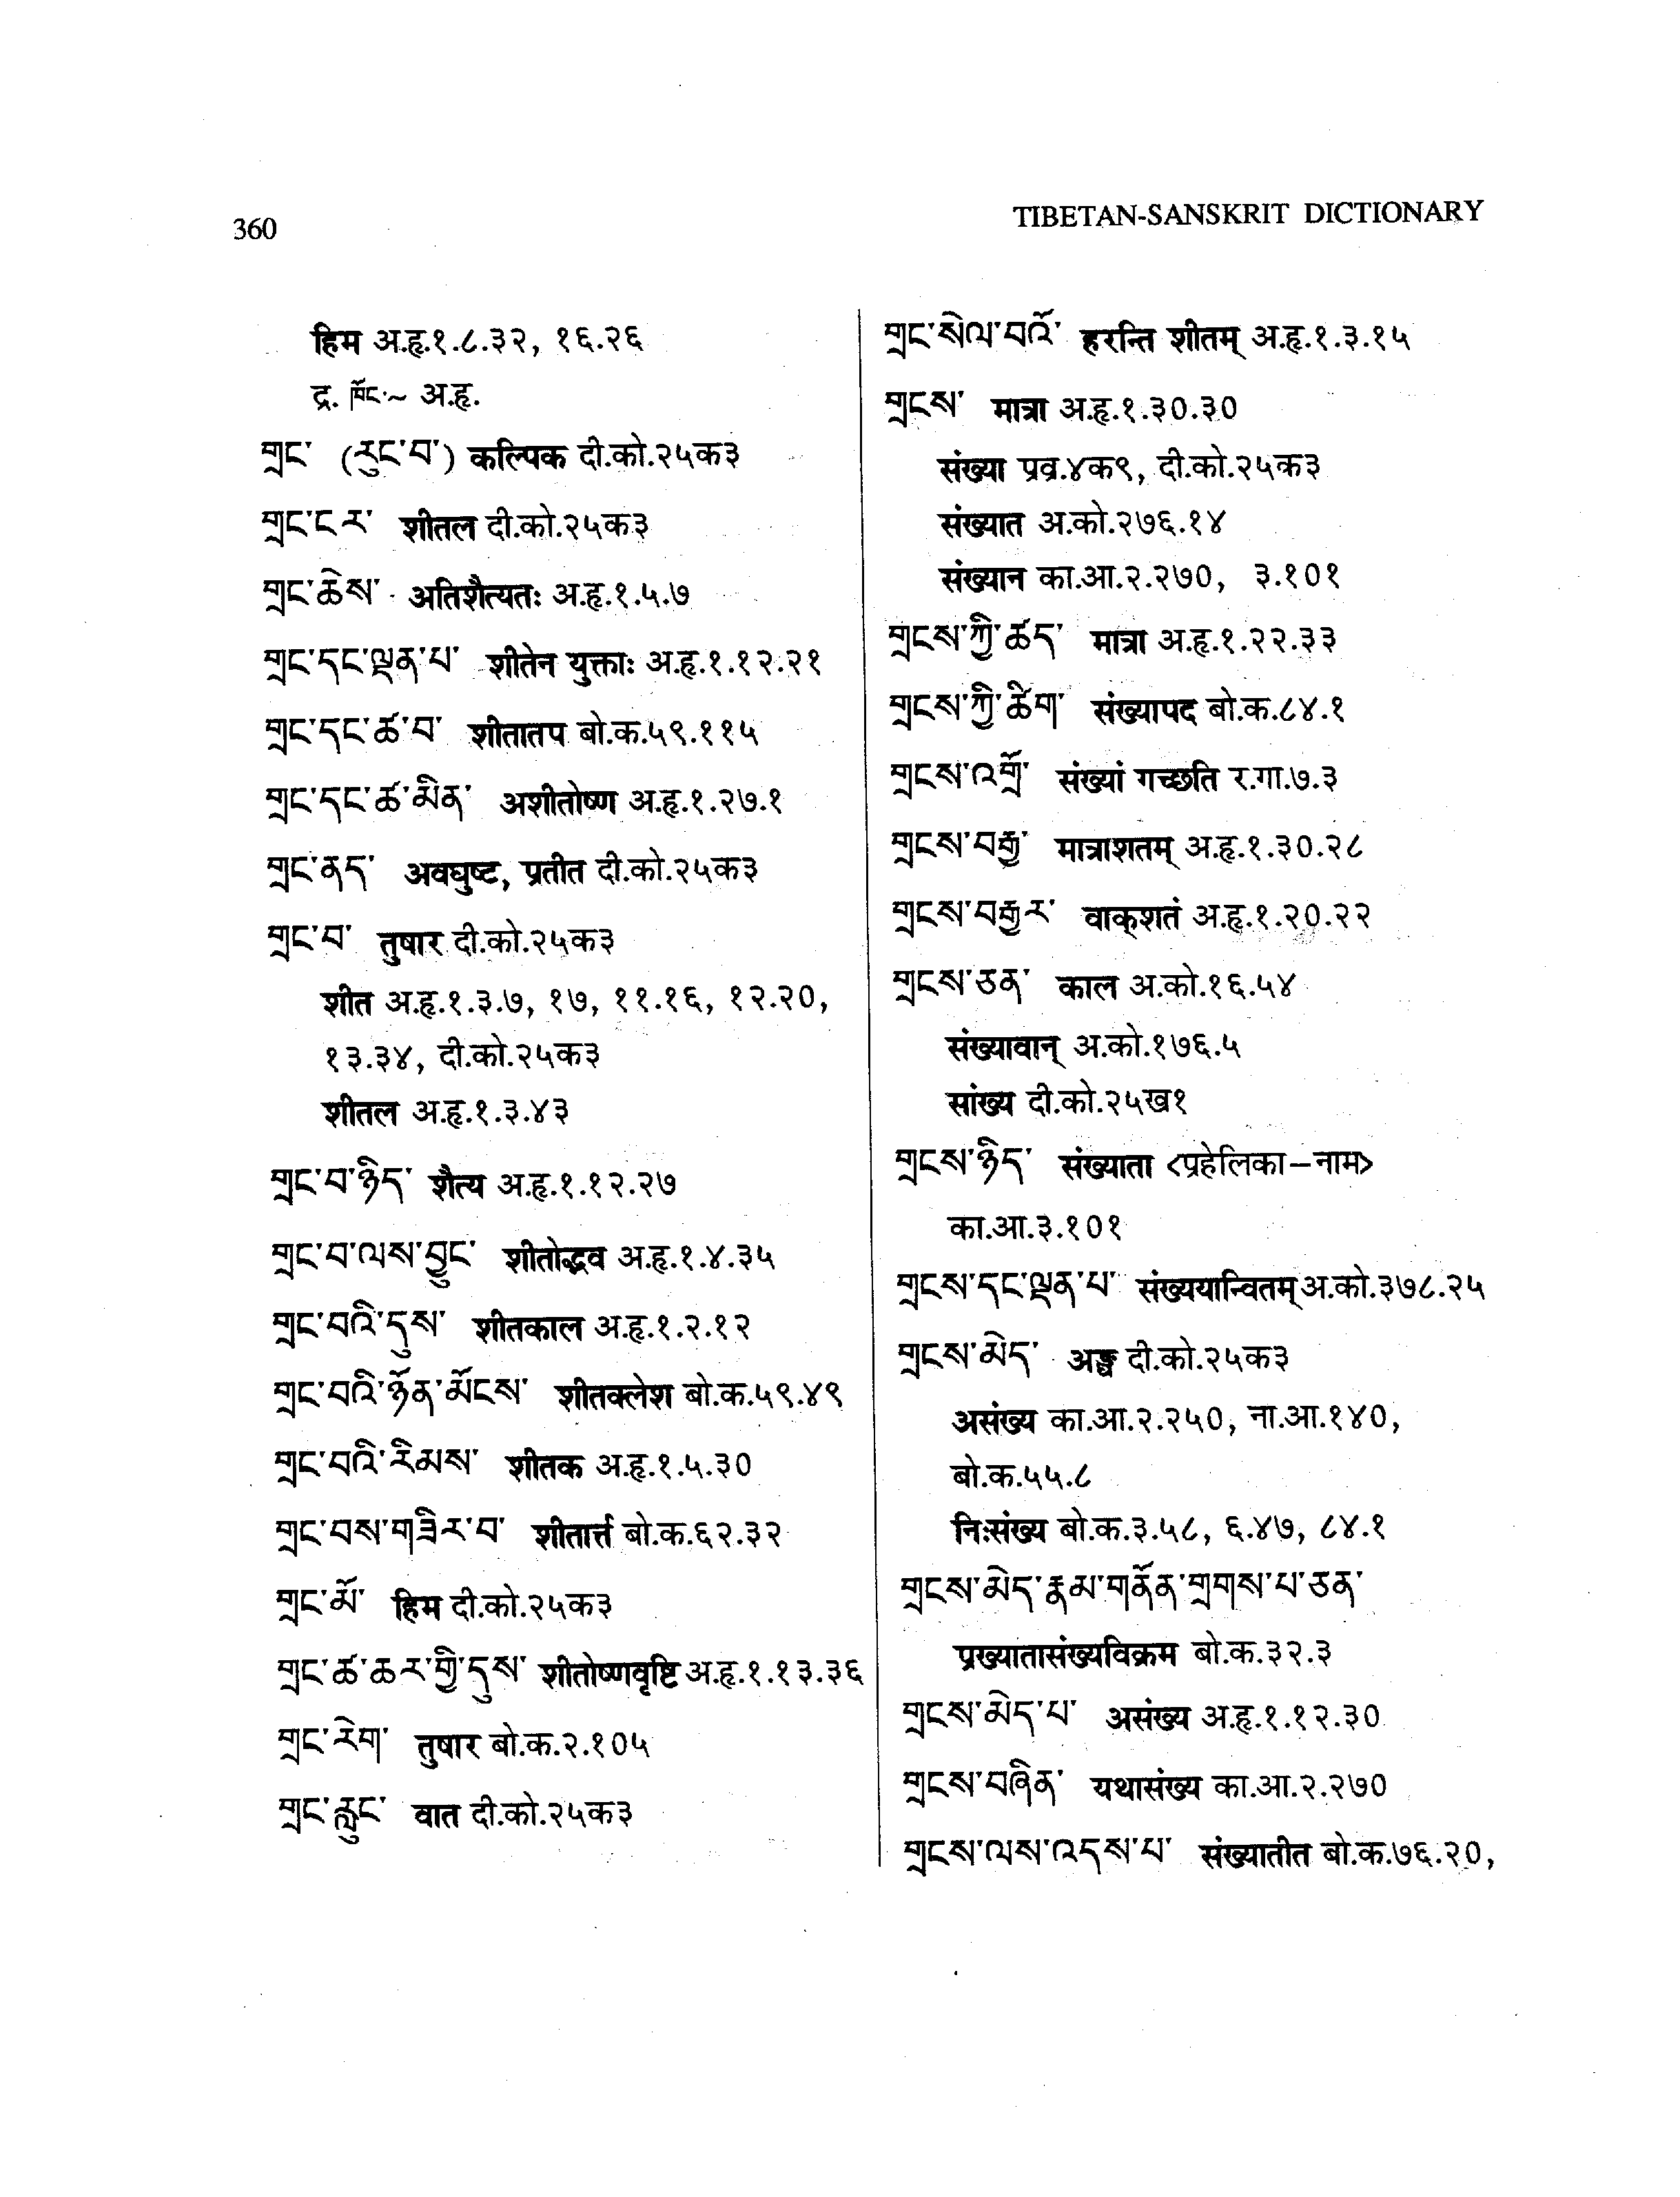 360
TIBETAN-SANSKRIT DICTIONARY
हिम अ.हृ.१.८.३२, १६.२६
द्र. ཁོང་~ अ.हृ.
གྲང་ (རུང་བ་) कल्पिक दी.को.२५क३
གྲང་ངར་ शीतल दी.को.२५क३
གྲང་ཆེས་ अतिशैत्यतः अ.हृ.१.५.७
གྲང་དང་ལྡན་པ་ शीतेन युक्ताः अ.हृ.१.१२.२१
གྲང་དང་ཚ་བ་ शीतातप बो.क.५९.११५
གྲང་དང་ཚ་མིན་ अशीतोष्ण अ.हृ.१.२७.१
གྲང་ནད་ अवघुष्ट, प्रतीत दी.को.२५क३
གྲང་བ་ तुषार दी.को.२५क३
शीत अ.हृ.१.३.७, १७, ११.१६, १२.२०,
१३.३४, दी.को.२५क३
शीतल अ.हृ.१.३.४३
གྲང་བ་ཉིད་ शैत्य अ.हृ.१.१२.२७
གྲང་བ་ལས་བྱུང་ शीतोद्भव अ.हृ.१.४.३५
གྲང་བའི་དུས་ शीतकाल अ.हृ.१.२.१२
གྲང་བའི་ཉོན་མོངས་ शीतक्लेश बो.क.५९.४९
གྲང་བའི་རིམས་ शीतक अ.हृ.१.५.३०
གྲང་བས་གཟིར་བ་ शीतार्त्त बो.क.६२.३२
གྲང་མོ་ हिम दी.को.२५क३
གྲང་ཚ་ཆར་གྱི་དུས་ शीतोष्णवृष्टि अ.हृ.१.१३.३६
གྲང་རེག་ तुषार बो.क.२.१०५
གྲང་རླུང་ वात दी.को.२५क३
གྲང་སེལ་བའོ་ हरन्ति शीतम् अ.हृ.१.३.१५
གྲངས་ मात्रा अ.हृ.१.३०.३०
संख्या प्रव्र.४क९, दी.को.२५क३
संख्यात अ.को.२७६.१४
संख्यान का.आ.२.२७०, ३.१०१
གྲངས་ཀྱི་ཚད་ मात्रा अ.हृ.१.२२.३३
གྲངས་ཀྱི་ཚིག་ संख्यापद बो.क.८४.१
གྲངས་འགྲོ་ संख्यां गच्छति र.गा.७.३
གྲངས་བརྒྱ་ मात्राशतम् अ.हृ.१.३०.२८
གྲངས་བརྒྱར་ वाक्‌शतं अ.हृ.१.२०.२२
གྲངས་ཅན་ काल अ.को.१६.५४
संख्यावान् अ.को.१७६.५
सांख्य दी.को.२५ख१
གྲངས་ཉིད་ संख्याता <प्रहेलिका–नाम>
का.आ.३.१०१
གྲངས་དང་ལྡན་པ་ संख्ययान्वितम् अ.को.३७८.२५
གྲངས་མེད་ दी.को.२५क३
असंख्य का.आ.२.२५०, ना.आ.१४०,
बो.क.५५.८
निःसंख्य बो.क.३.५८, ६.४७, ८४.१
གྲངས་མེད་རྣམ་གནོན་གྲགས་པ་ཅན་
प्रख्यातासंख्यविक्रम बो.क.३२.३
གྲངས་མེད་པ་ असंख्य अ.हृ.१.१२.३०
གྲངས་བཞིན་ यथासंख्य का.आ.२.२७०
གྲངས་ལས་འདས་པ་ संख्यातीत बो.क.७६.२०,